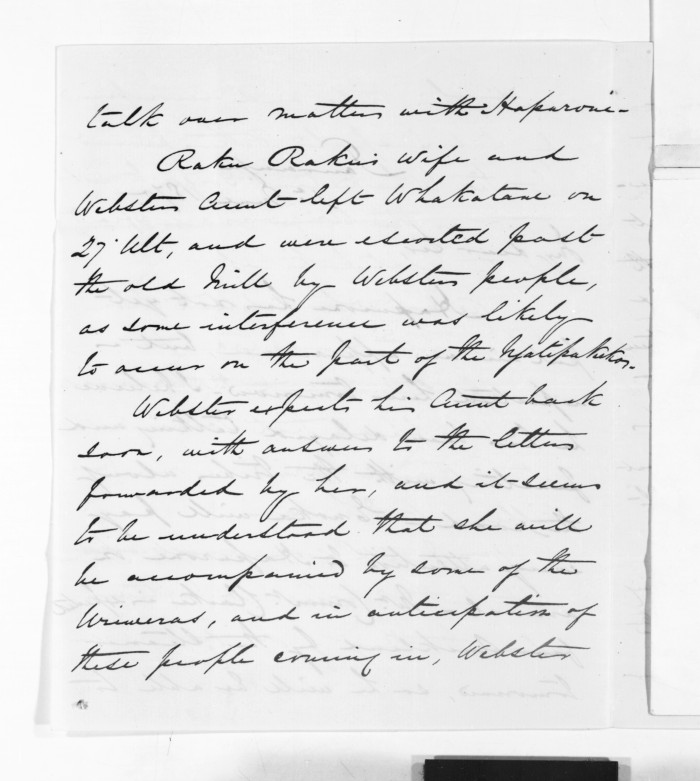 talk over matters with Haparoni-
Raku Raku's wife and
Websters Aunt left Whakatane on
27 Ult, and were escorted past
the old Mill by Websters people,
as some interference was likely
to occur on the part of the Ngatipukekos.
Webster expects his Aunt back
soon, with answers to the letters
forwarded by her, and it seems
to be understood that she will
be accompanied by some of the
Uriweras, and in anticipation of
these people coming in, Webster